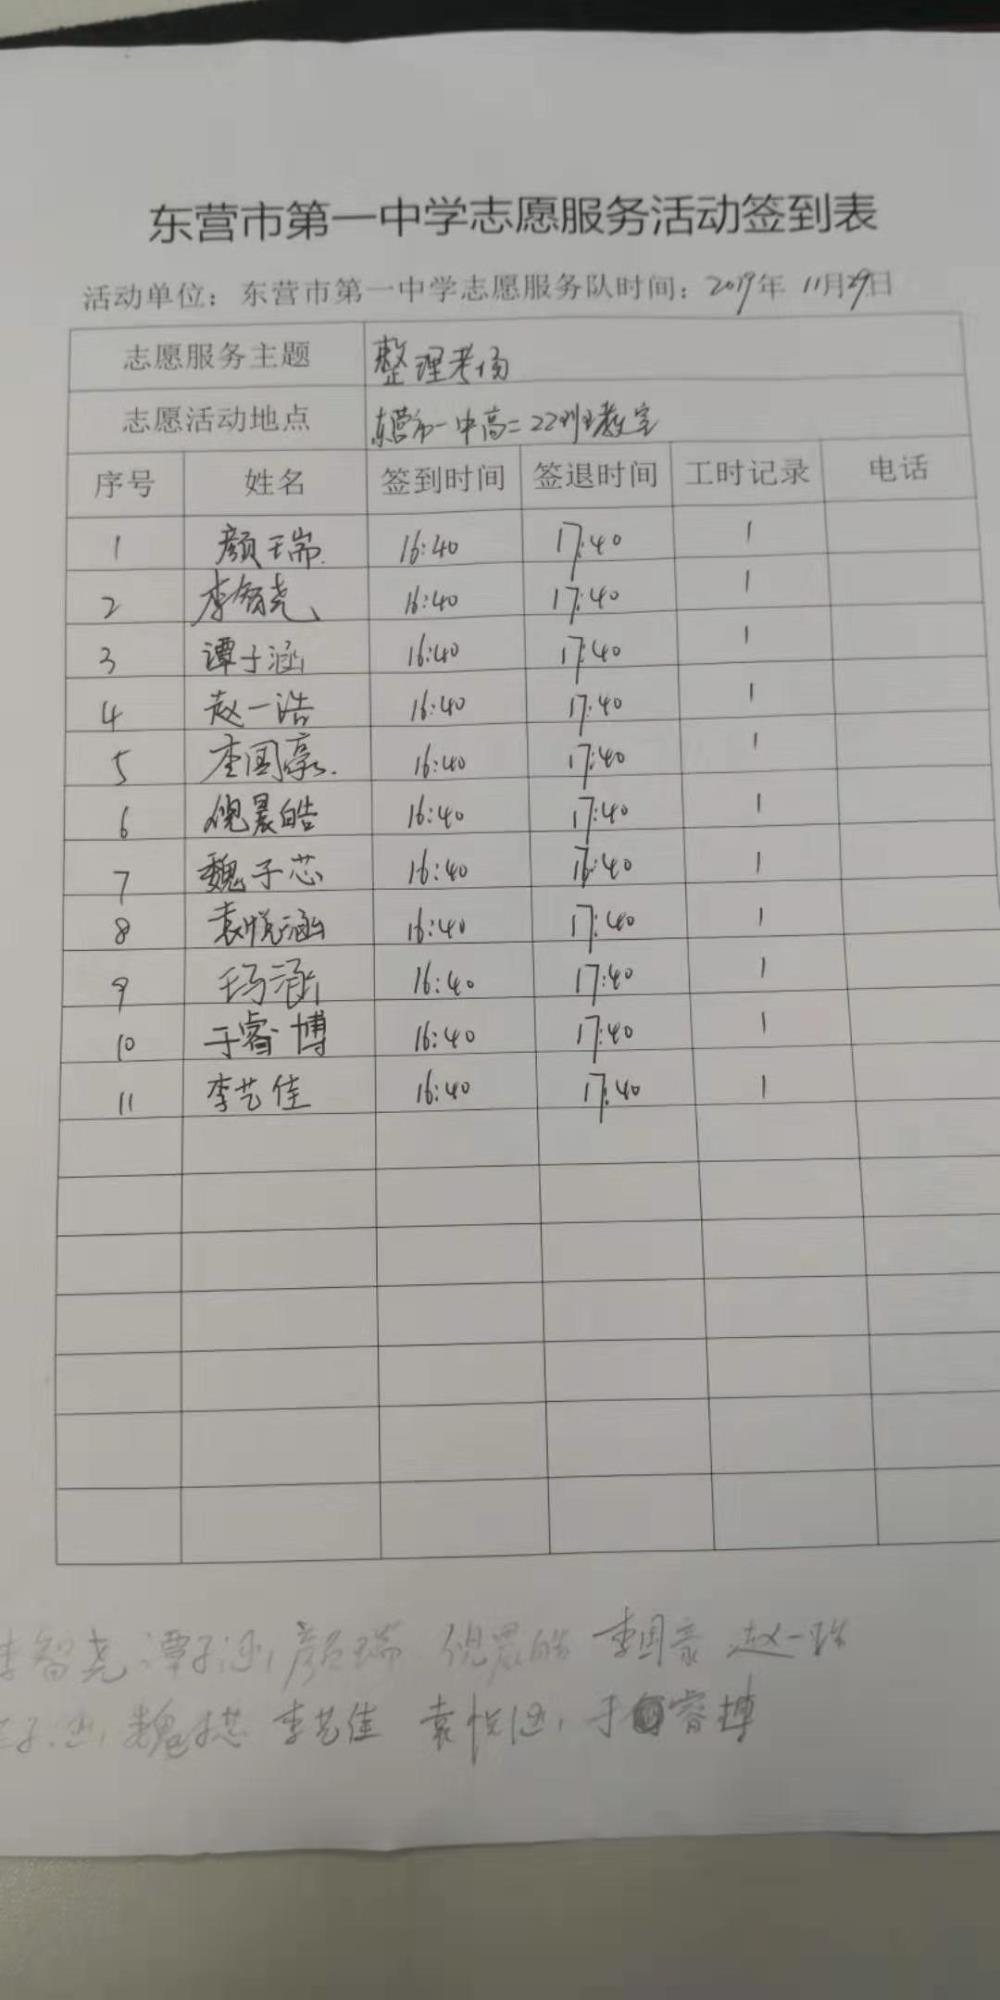 东营市第一中学志愿服务活动签到表
活动单位：东营市第一中学志愿服务队时间：2019年 11月29日
志愿服务主题 整理考场
志愿活动地点 东营市一中高二22班教室
序号 姓名 签到时间 签退时间 工时记录 电话
1 颜瑞 16:40 17:40 1
2 李智尧 16:40 17:40 1
3 谭子涵 16:40 17:40 1
4 赵一浩 16:40 17:40 1
5 李国豪 16:40 17:40 1
6 倪晨皓 16:40 17:40 1
7 魏子芯 16:40 16:40 1
8 袁悦涵 16:40 17:40 1
9 涵 16:40 17:40 1
10 于睿博 16:40 17:40 1
11 李艺佳 16:40 17:40 1
李智尧 谭子涵 颜瑞 倪晨皓 李国豪 赵一
子涵 魏子芯 李艺佳 袁悦涵 于睿博